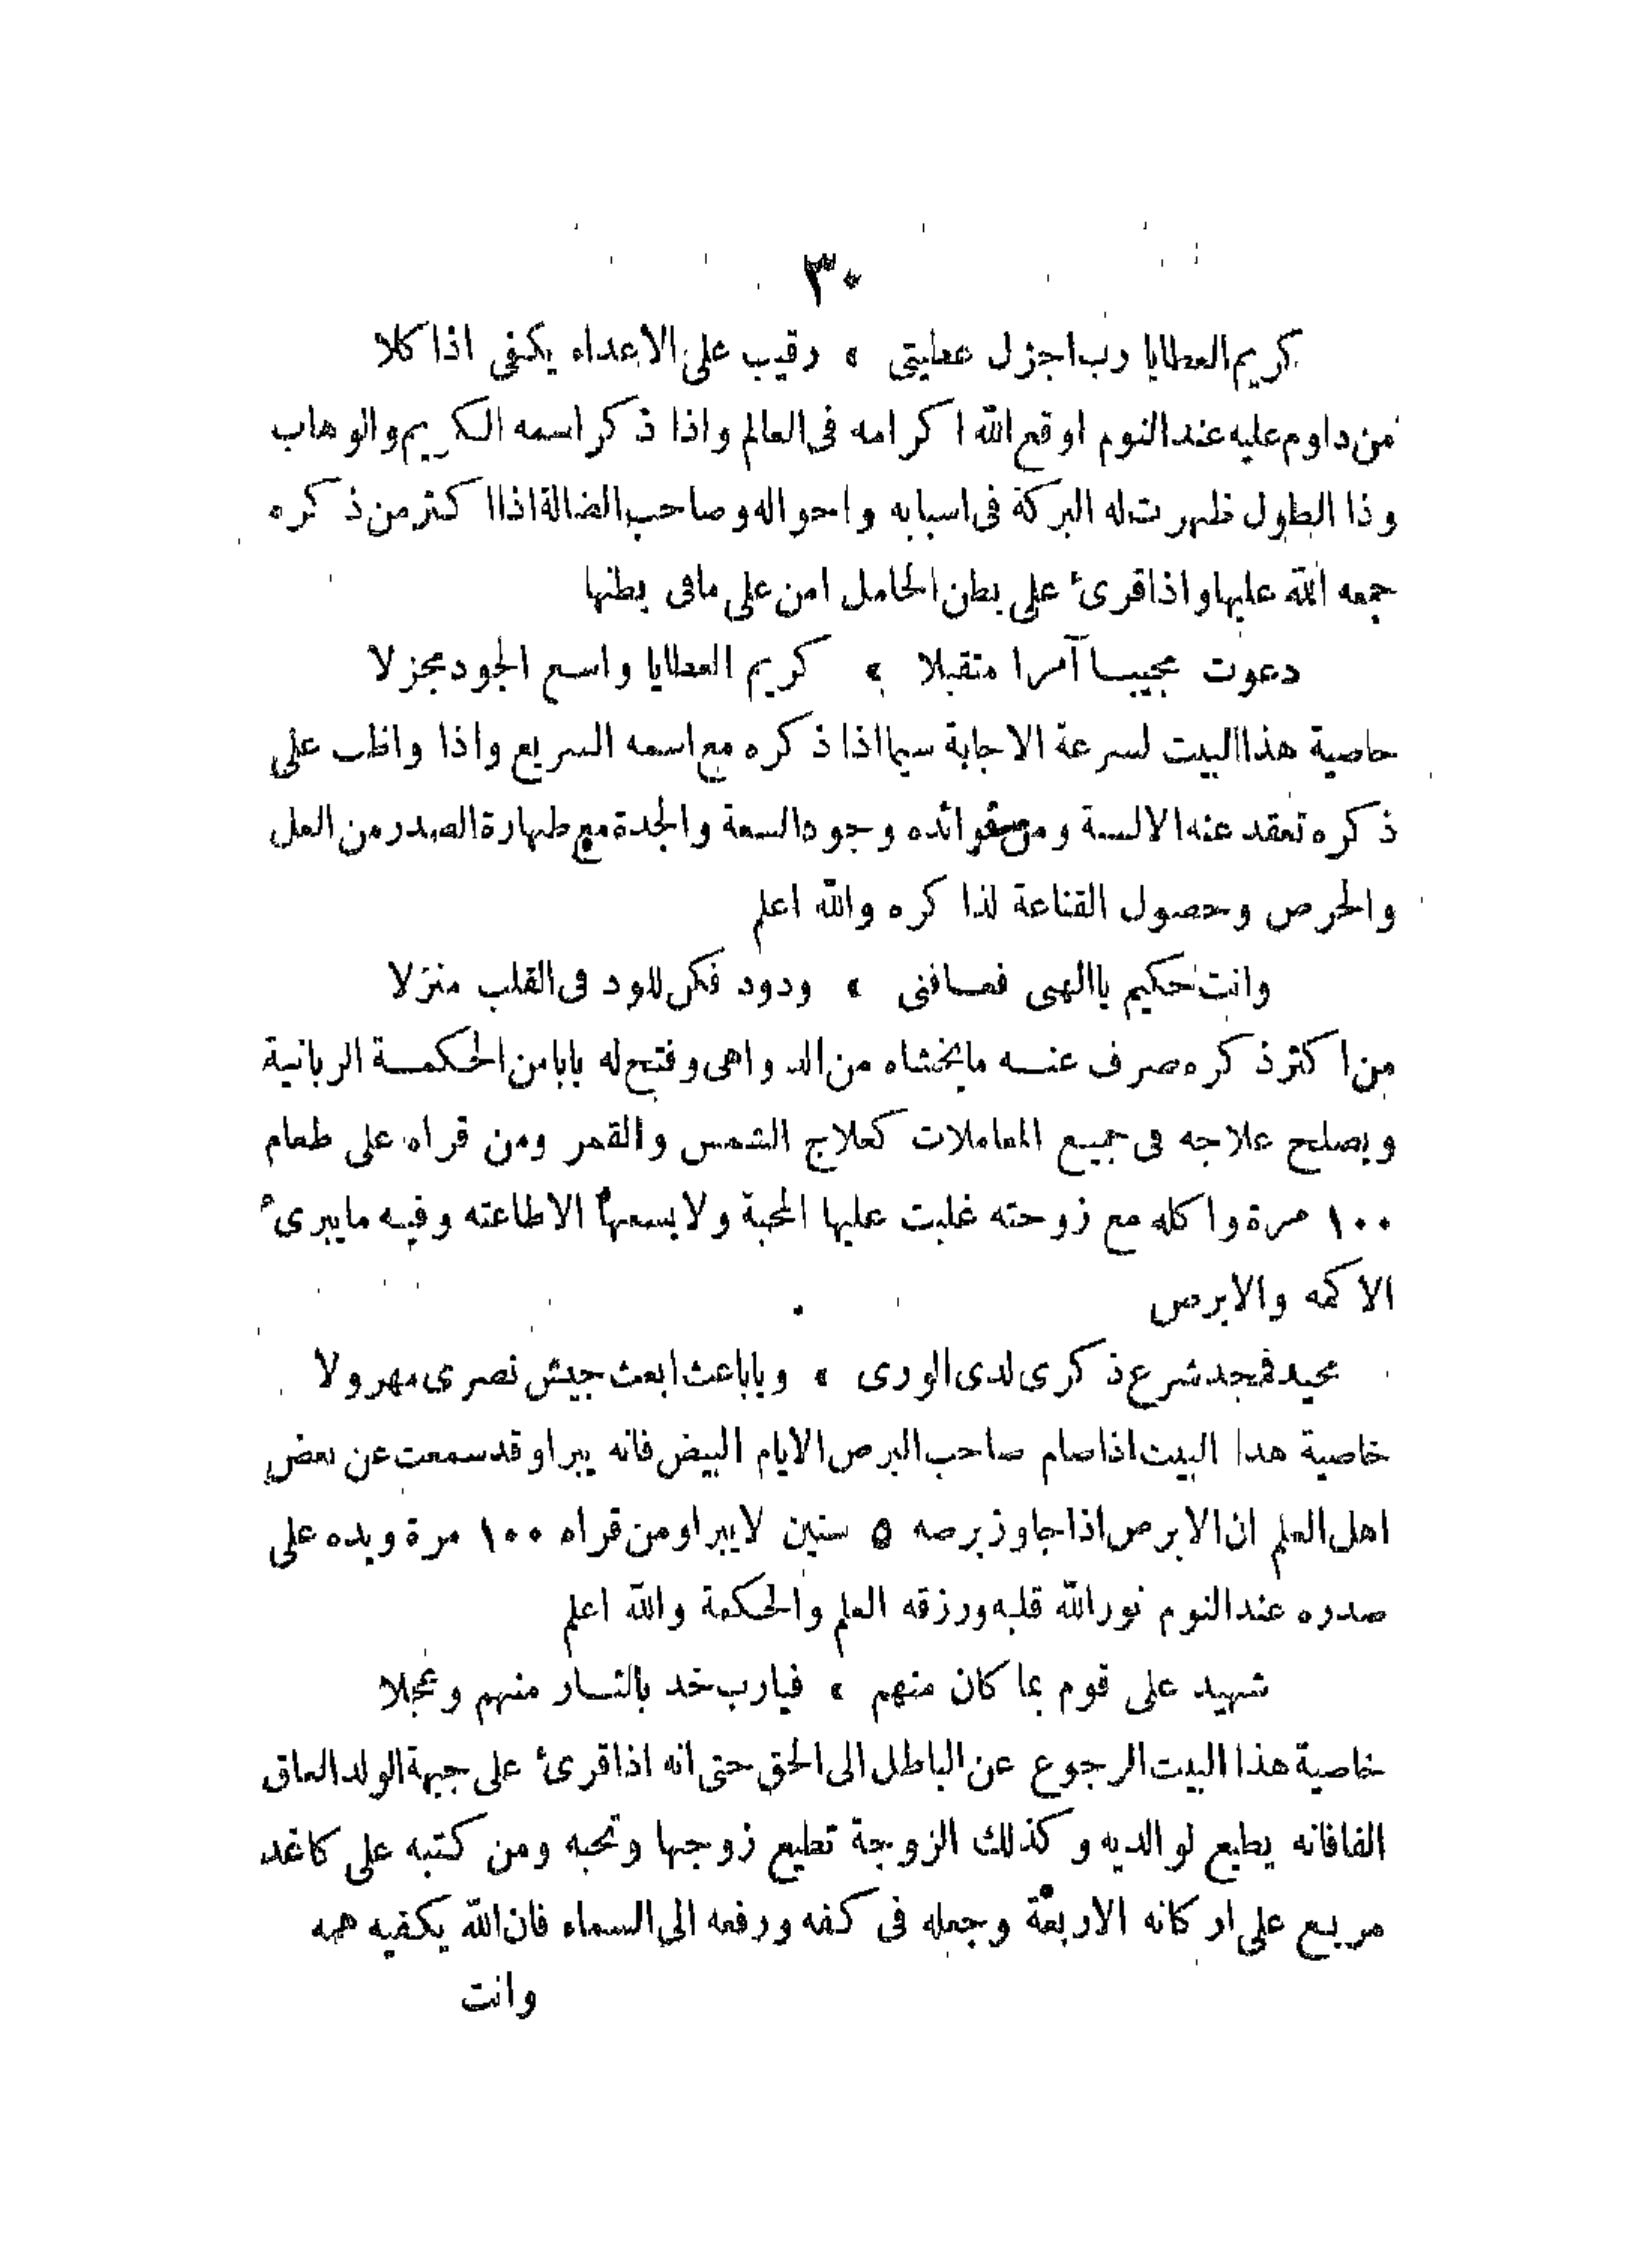 ٣٠
كريم العطايا رب اجزل عطيتي * رقيب على الاعداء يكفى اذا كلا
من داوم عليه عند النوم اوقع الله اكرامه فى العالم واذا ذكر اسمه الكريم والوهاب
وذا الطول ظهرت له البركة فى اسبابه واحواله وصاحب الضالة اذا اكثر من ذكره
جمعه الله عليها واذا قرئ على بطن الحامل امن على ما فى بطنها
دعوت مجيبا آمرا متقبلا * كريم العطايا واسع الجود مجزلا
خاصية هذا البيت لسرعة الاجابة سيما اذا ذكره مع اسمه السريع واذا واظب على
ذكره تعقد عنه الالسنة ومن فوائده وجود السعة والجدة مع طهارة الصدر من الغل
والحرص وحصول القناعة لذاكره والله اعلم
وانت حكيم يا الهى فعافنى * ودود فكن للود فى القلب منزلا
من اكثر ذكره صرف عنه ما يخشاه من الدواهى وفتح له بابا من الحكمة الربانية
ويصلح علاجه فى جميع المعاملات كعلاج الشمس والقمر ومن قراه على طعام
١٠٠ مرة واكله مع زوجته غلبت عليها المحبة ولا يسعها الا طاعته وفيه ما يبرئ
الاكمه والابرص
مجيد فمجد شرع ذكرى لدى الورى * ويا باعث ابعث جيش نصرى مهرولا
خاصية هذا البيت اذا صام صاحب البرص الايام البيض فانه يبرا وقد سمعت عن بعض
اهل العلم ان الابرص اذا جاوز برصه ٥ سنين لا يبرا ومن قراه ١٠٠ مرة ويده على
صدره عند النوم نور الله قلبه ورزقه العلم والحكمة والله اعلم
شهيد على قوم بما كان منهم * فيارب خذ بالثار منهم وعجلا
خاصية هذا البيت الرجوع عن الباطل الى الحق حتى انه اذا قرئ على جبهة الولد العاق
الفا فانه يطيع لوالديه وكذلك الزوجة تطيع زوجها وتحبه ومن كتبه على كاغد
مربع على اركانه الاربعة وجعله فى كفه ورفعه الى السماء فان الله يكفيه همه
وانت